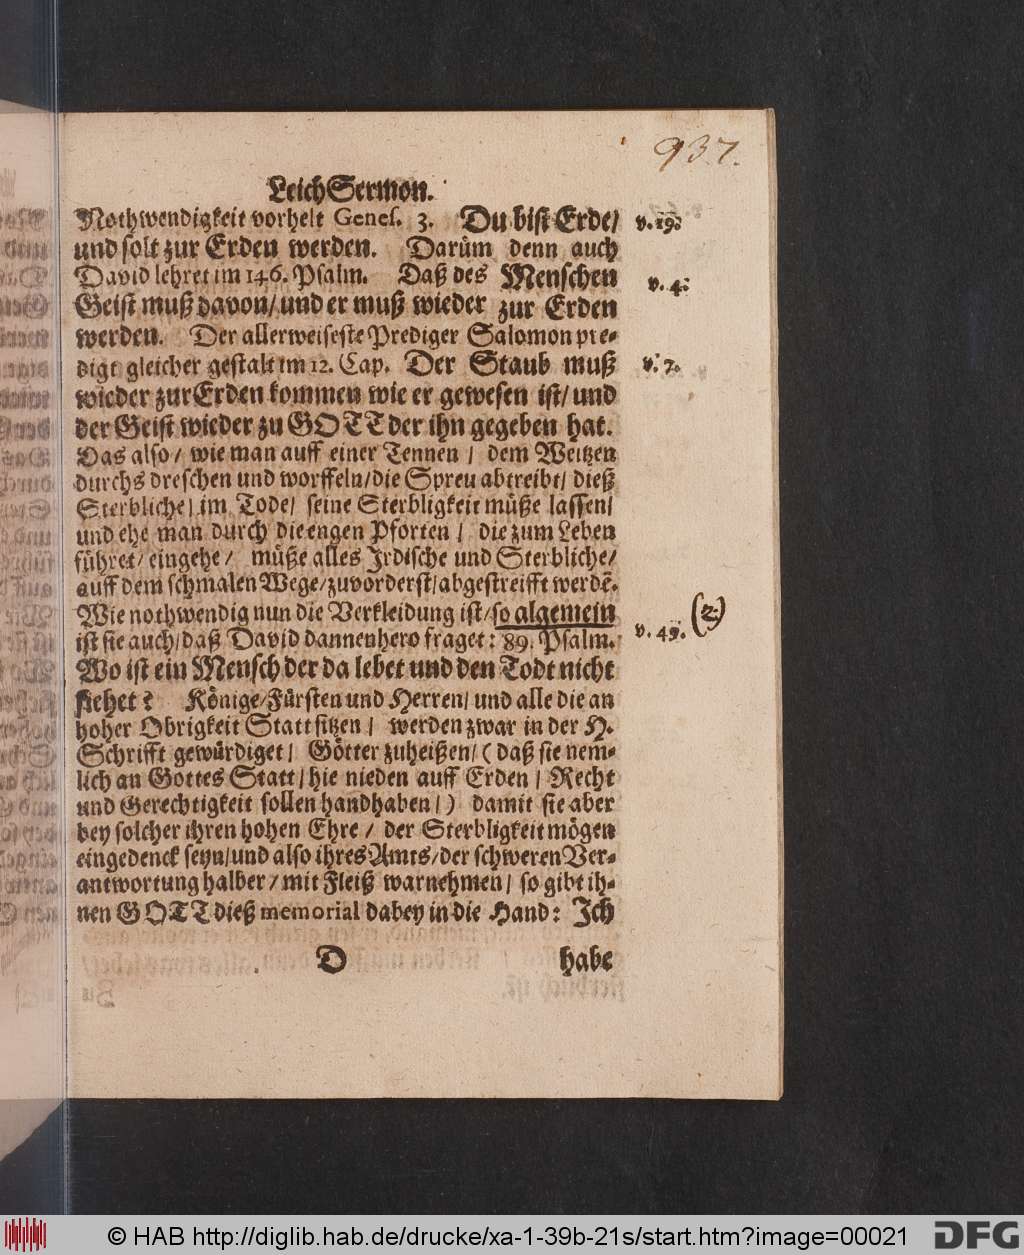 937.
Leich Sermon.
Nothwendigkeit vorhelt Genes. 3. Du bist Erde/ v. 19.
und solt zur Erden werden. Darům denn auch
David lehret im 146. Psalm. Daß des Menschen v. 4.
Geist muß davon/ und er muß wieder zur Erden
werden. Der allerweiseste Prediger Salomon pre-
digt gleicher gestalt im 12. Cap. Der Staub muß v. 7.
wieder zur Erden kommen wie er gewesen ist/ und
der Geist wieder zu GOTT der ihn gegeben hat.
Das also/ wie man auff einer Tennen/ dem Weitzen
durchs dreschen und worffeln/ die Spreu abtreibt/ dieß
Sterbliche/ im Tode/ seine Sterbligkeit můße lassen/
und ehe man durch die engen Pforten/ die zum Leben
führet/ eingehe/ můße alles Irdische und Sterbliche/
auff dem schmalen Wege/ zuvorderst/ abgestreifft werdẽ.
Wie nothwendig nun die Verkleidung ist/ so algemein (2)
ist sie auch/ daß David dannenhero fraget: 89. Psalm. v. 49.
Wo ist ein Mensch der da lebet und den Todt nicht
siehet? Könige/ Fürsten und Herren/ und alle die an
hoher Obrigkeit Statt sitzen/ werden zwar in der H.
Schrifft gewůrdiget/ Götter zuheißen/ (daß sie nem-
lich an Gottes Statt/ hie nieden auff Erden/ Recht
und Gerechtigkeit sollen handhaben/) damit sie aber
bey solcher ihren hohen Ehre/ der Sterbligkeit mögen
eingedenck seyn/ und also ihres Amts/ der schweren Ver-
antwortung halber/ mit Fleiß warnehmen/ so gibt ih-
nen GOTT dieß memorial dabey in die Hand: Ich
D habe
© HAB http://diglib.hab.de/drucke/xa-1-39b-21s/start.htm?image=00021
DFG